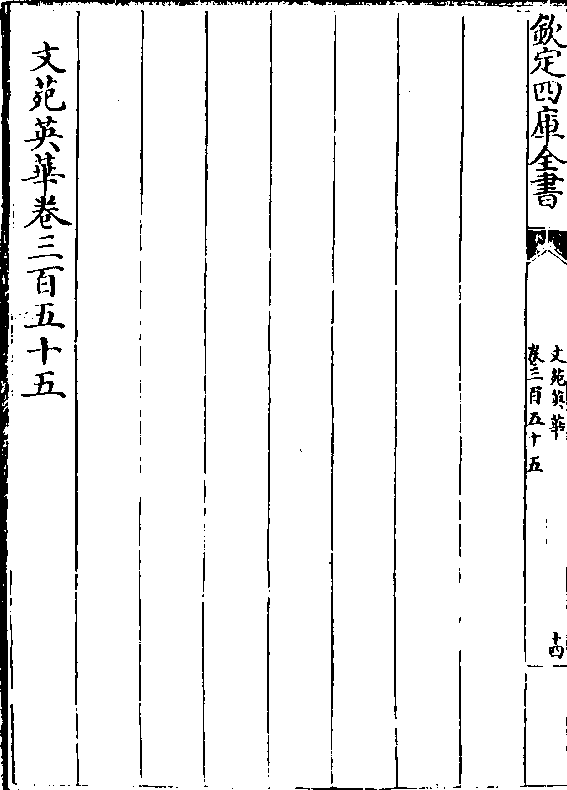 欽定四庫全書
文苑英華
卷三百五十五
十四
文苑英華卷三百五十五